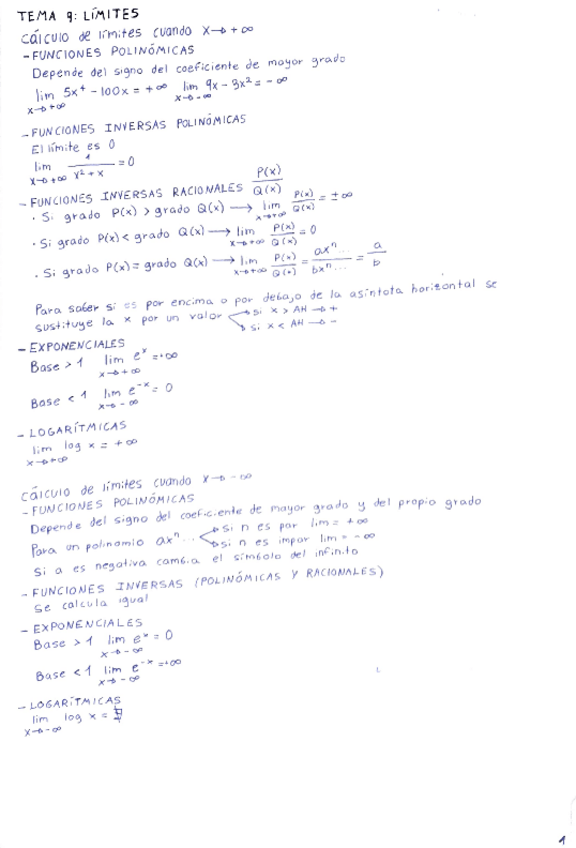 TEMA 9: LÍMITES
Cálculo de límites cuando x→+∞
- FUNCIONES POLINÓMICAS
Depende del signo del coeficiente de mayor grado
lim x→+∞ 5x⁴ - 100x = +∞ lim x→-∞ 9x - 3x² = -∞
- FUNCIONES INVERSAS POLINÓMICAS
El límite es 0
lim x→+∞ 1/(x² + x) = 0
- FUNCIONES INVERSAS RACIONALES P(x)/Q(x)
· Si grado P(x) > grado Q(x) → lim x→+∞ P(x)/Q(x) = ±∞
· Si grado P(x) < grado Q(x) → lim x→+∞ P(x)/Q(x) = 0
· Si grado P(x) = grado Q(x) → lim x→+∞ P(x)/Q(x) = axⁿ.../bxⁿ... = a/b
Para saber si es por encima o por debajo de la asíntota horizontal se
sustituye la x por un valor → si x > AH → +
→ si x < AH → -
- EXPONENCIALES
Base > 1 lim x→+∞ eˣ = +∞
Base < 1 lim x→-∞ e⁻ˣ = 0
- LOGARÍTMICAS
lim x→+∞ log x = +∞
Cálculo de límites cuando x→-∞
- FUNCIONES POLINÓMICAS
Depende del signo del coeficiente de mayor grado y del propio grado
Para un polinomio axⁿ... → si n es par lim = +∞
→ si n es impar lim = -∞
Si a es negativa cambia el símbolo del infinito
- FUNCIONES INVERSAS (POLINÓMICAS Y RACIONALES)
Se calcula igual
- EXPONENCIALES
Base > 1 lim x→-∞ eˣ = 0
Base < 1 lim x→-∞ e⁻ˣ = +∞
- LOGARÍTMICAS
lim x→-∞ log x = ∄
1